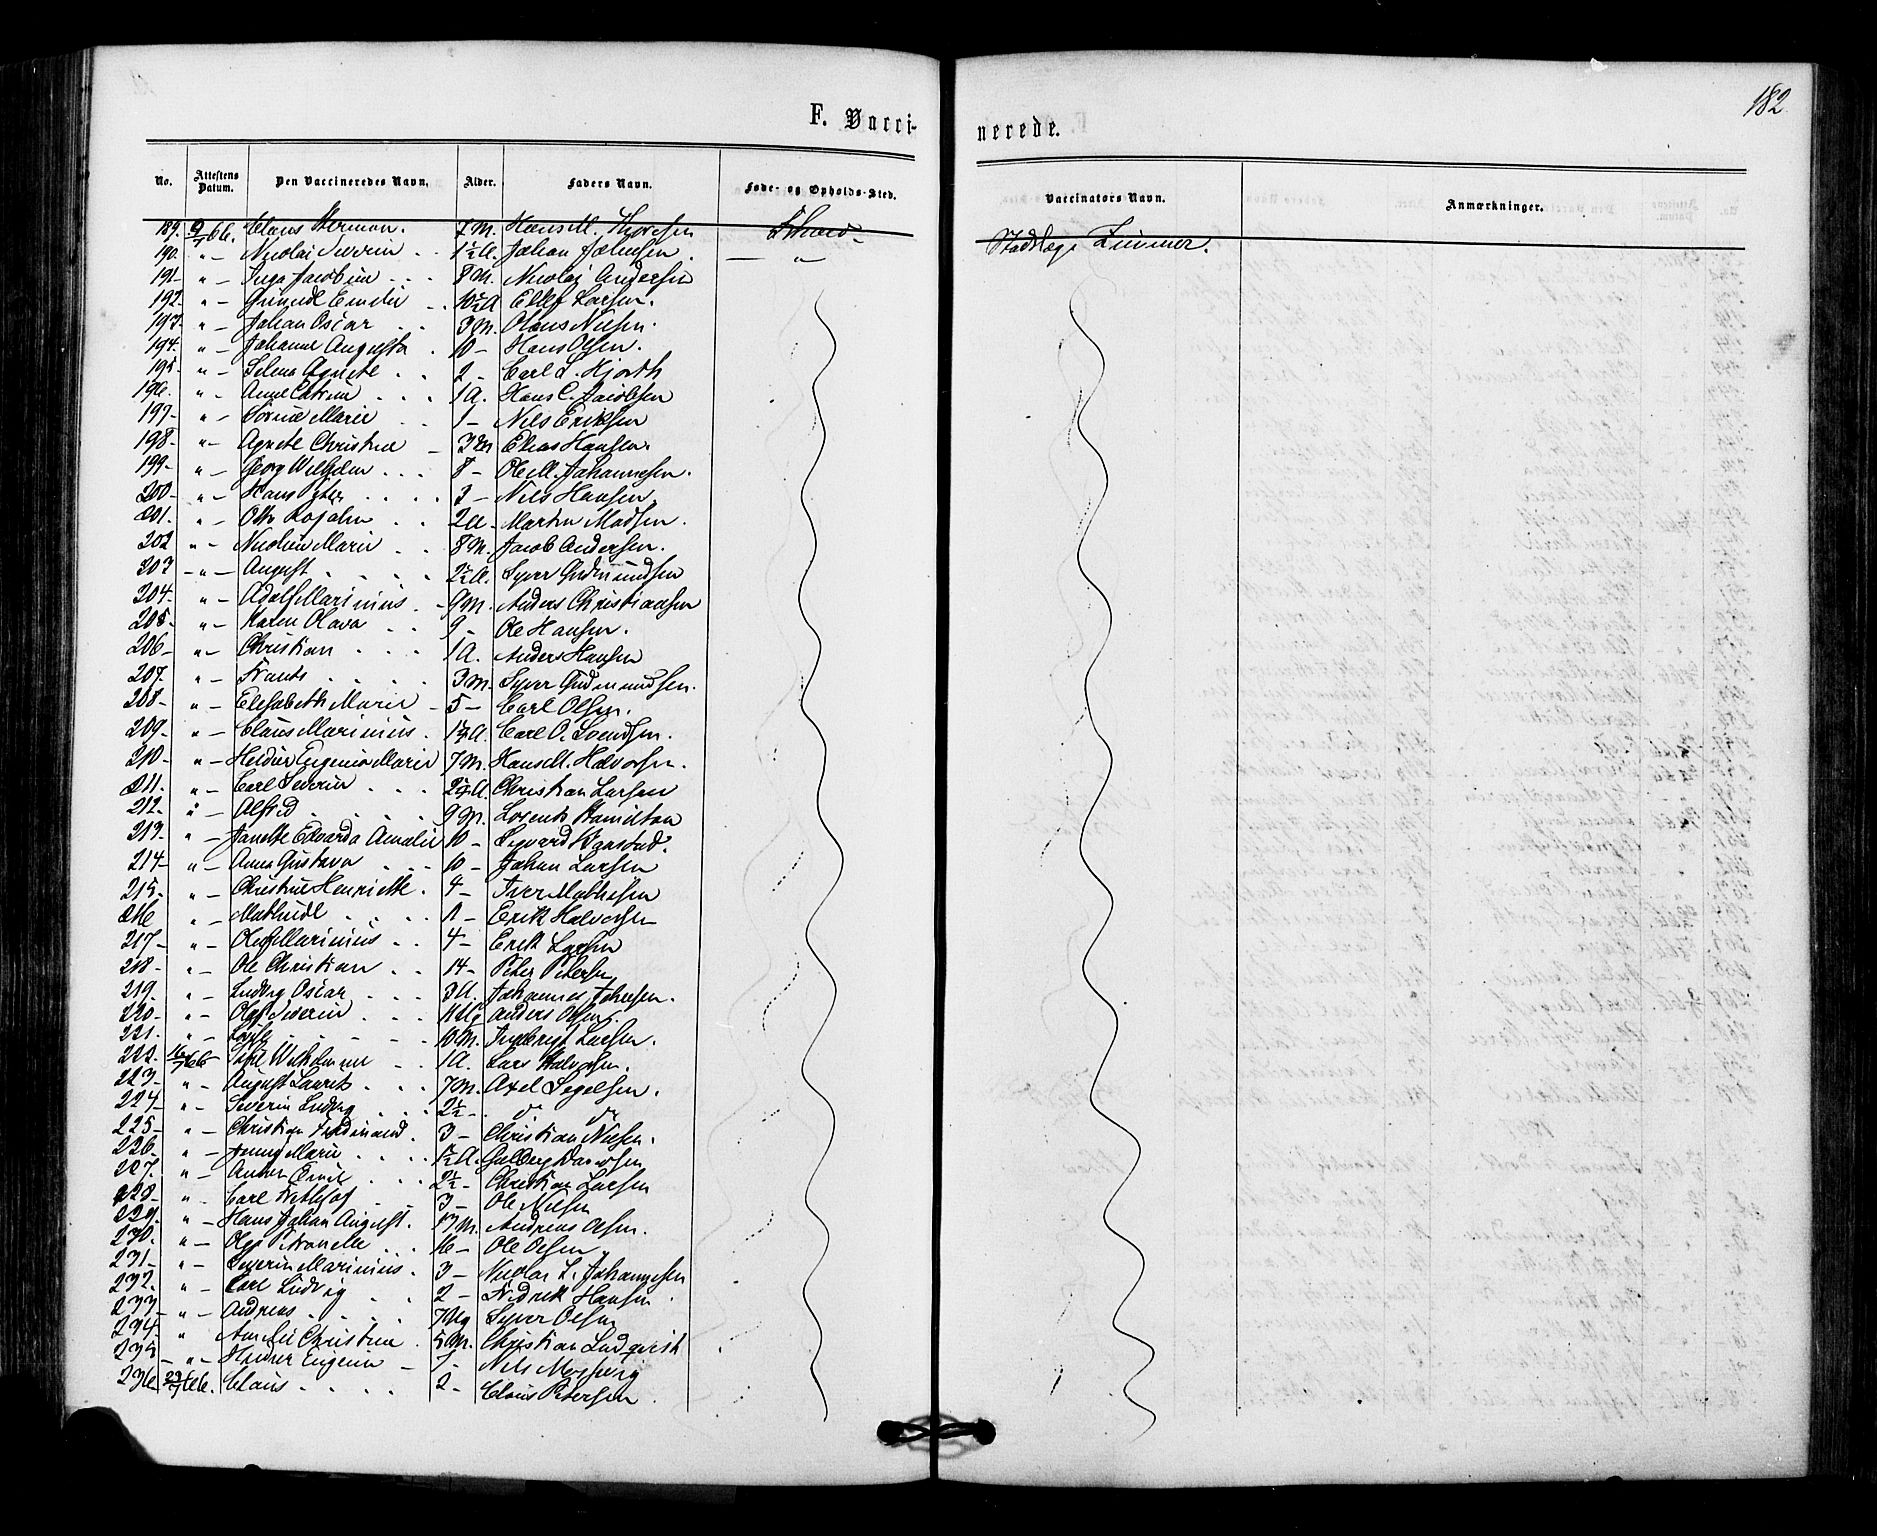 182
F. Vaccinerede.
No. Attestens Datum. Den Vaccineredes Navn. Alder. Faders Navn. Føde- og Opholds-Sted. Vaccinators Navn. Anmærkninger.
189. 9/7 66. Claus Herman. 7 M. Hans M. Thoresen Stadslæge Zimmer.
190. " – Nicolai Severin 1½ A. Johan Johnsen. – " –
191– " – Inga Jacobine 8 M. Nicolai Andersen
192– " – Emilie 10½ A Ellef Larsen.
193– " – Johan Oscar 3 M. Olaus Nilsen.
194– " – Johanne Augusta 10 – Hans Olsen.
195– " – Selma Agnete 2 – Carl L. Hjorth
196. " – Anne Catrine 1 A. Hans C. Jacobsen
197– " – Sørine Marie 1 – Nils Eriksen
198– " – Agnete Christine 3 M Elias Hansen.
199– " – Georg Wilhelm 8 – Ole M. Johannesen.
200– " – Hans Peter 3 – Nils Hansen.
201. " – Otto 2 A – Martin Madsen.
202 " – Nicoline Marie 8 M. Jacob Andersen.
203 – " – August 2½ A. Syver Gudmundsen
204. " – Adolf Marinius 9 M. Anders Christiansen
205– " – Karen Olava 9 – Ole Hansen.
206– " – Christian 1 A. Anders Hansen
207. " – Frants 3 M. Syver Gudmundsen.
208– " – Elisabeth Marie 5 – Carl Olsen.
209– " – Claus Marinius 1½ A. Carl O. Svendsen.
210– " – Eugenia Marie 7 M. Hans M. Halvorsen.
211. " – Carl Severin A. Christian Larsen
212. " – Alfred 9 M. Lorents Hamilton
213. " – Janette Edvarda Amalie 10 – Sigvard
214– " – Anna Gustava 10 – Johan Larsen
215– " – Christine Henriette. 4 – Iver Mathisen
216 " – Mathilde 1 – Erik Halvorsen
217– " – Oluf Marinius 4 – Erik Larsen
218– " – Ole Christian 14 – Peter Petersen
219. " – Ludvig Oscar 3 A. Johannes Johnsen.
220– " – Oluf Severin Anders Olsen.
221. " – Louise 10 M. Ingebrigt Larsen.
222. 16/7 66 – Wilhelmine 1 A. Lars Halvorsen.
223– " – August Laurits 7 M. Axel Segelsen.
224– " – Severin Ludvig 2½ – do do
225– " – Christian Ferdinand. 3 – Christian Nilsen.
226. " – Jenny Marie 1½ A.
227. " – Anton Emil 2½ – Christian Larsen
228– " – Carl Frithjof 3 – Ole Nilsen
229. " – Hans Johan August. 17 M. Andreas Olsen.
230. " – Olga Petronelle 16 – Ole Olsen
231– " – Severin Marinius. 3 – Nicolai L. Johannesen
232. " – Carl Ludvig 2 – Fredrik Hansen.
233– " – Andreas Syver Olsen
234. " Amalie Christine 5 M. Christian Lindqvist
235 – " – Eugenia – 1 – Nils
236 23/7 66. Claus 2 – Claus Petersen.